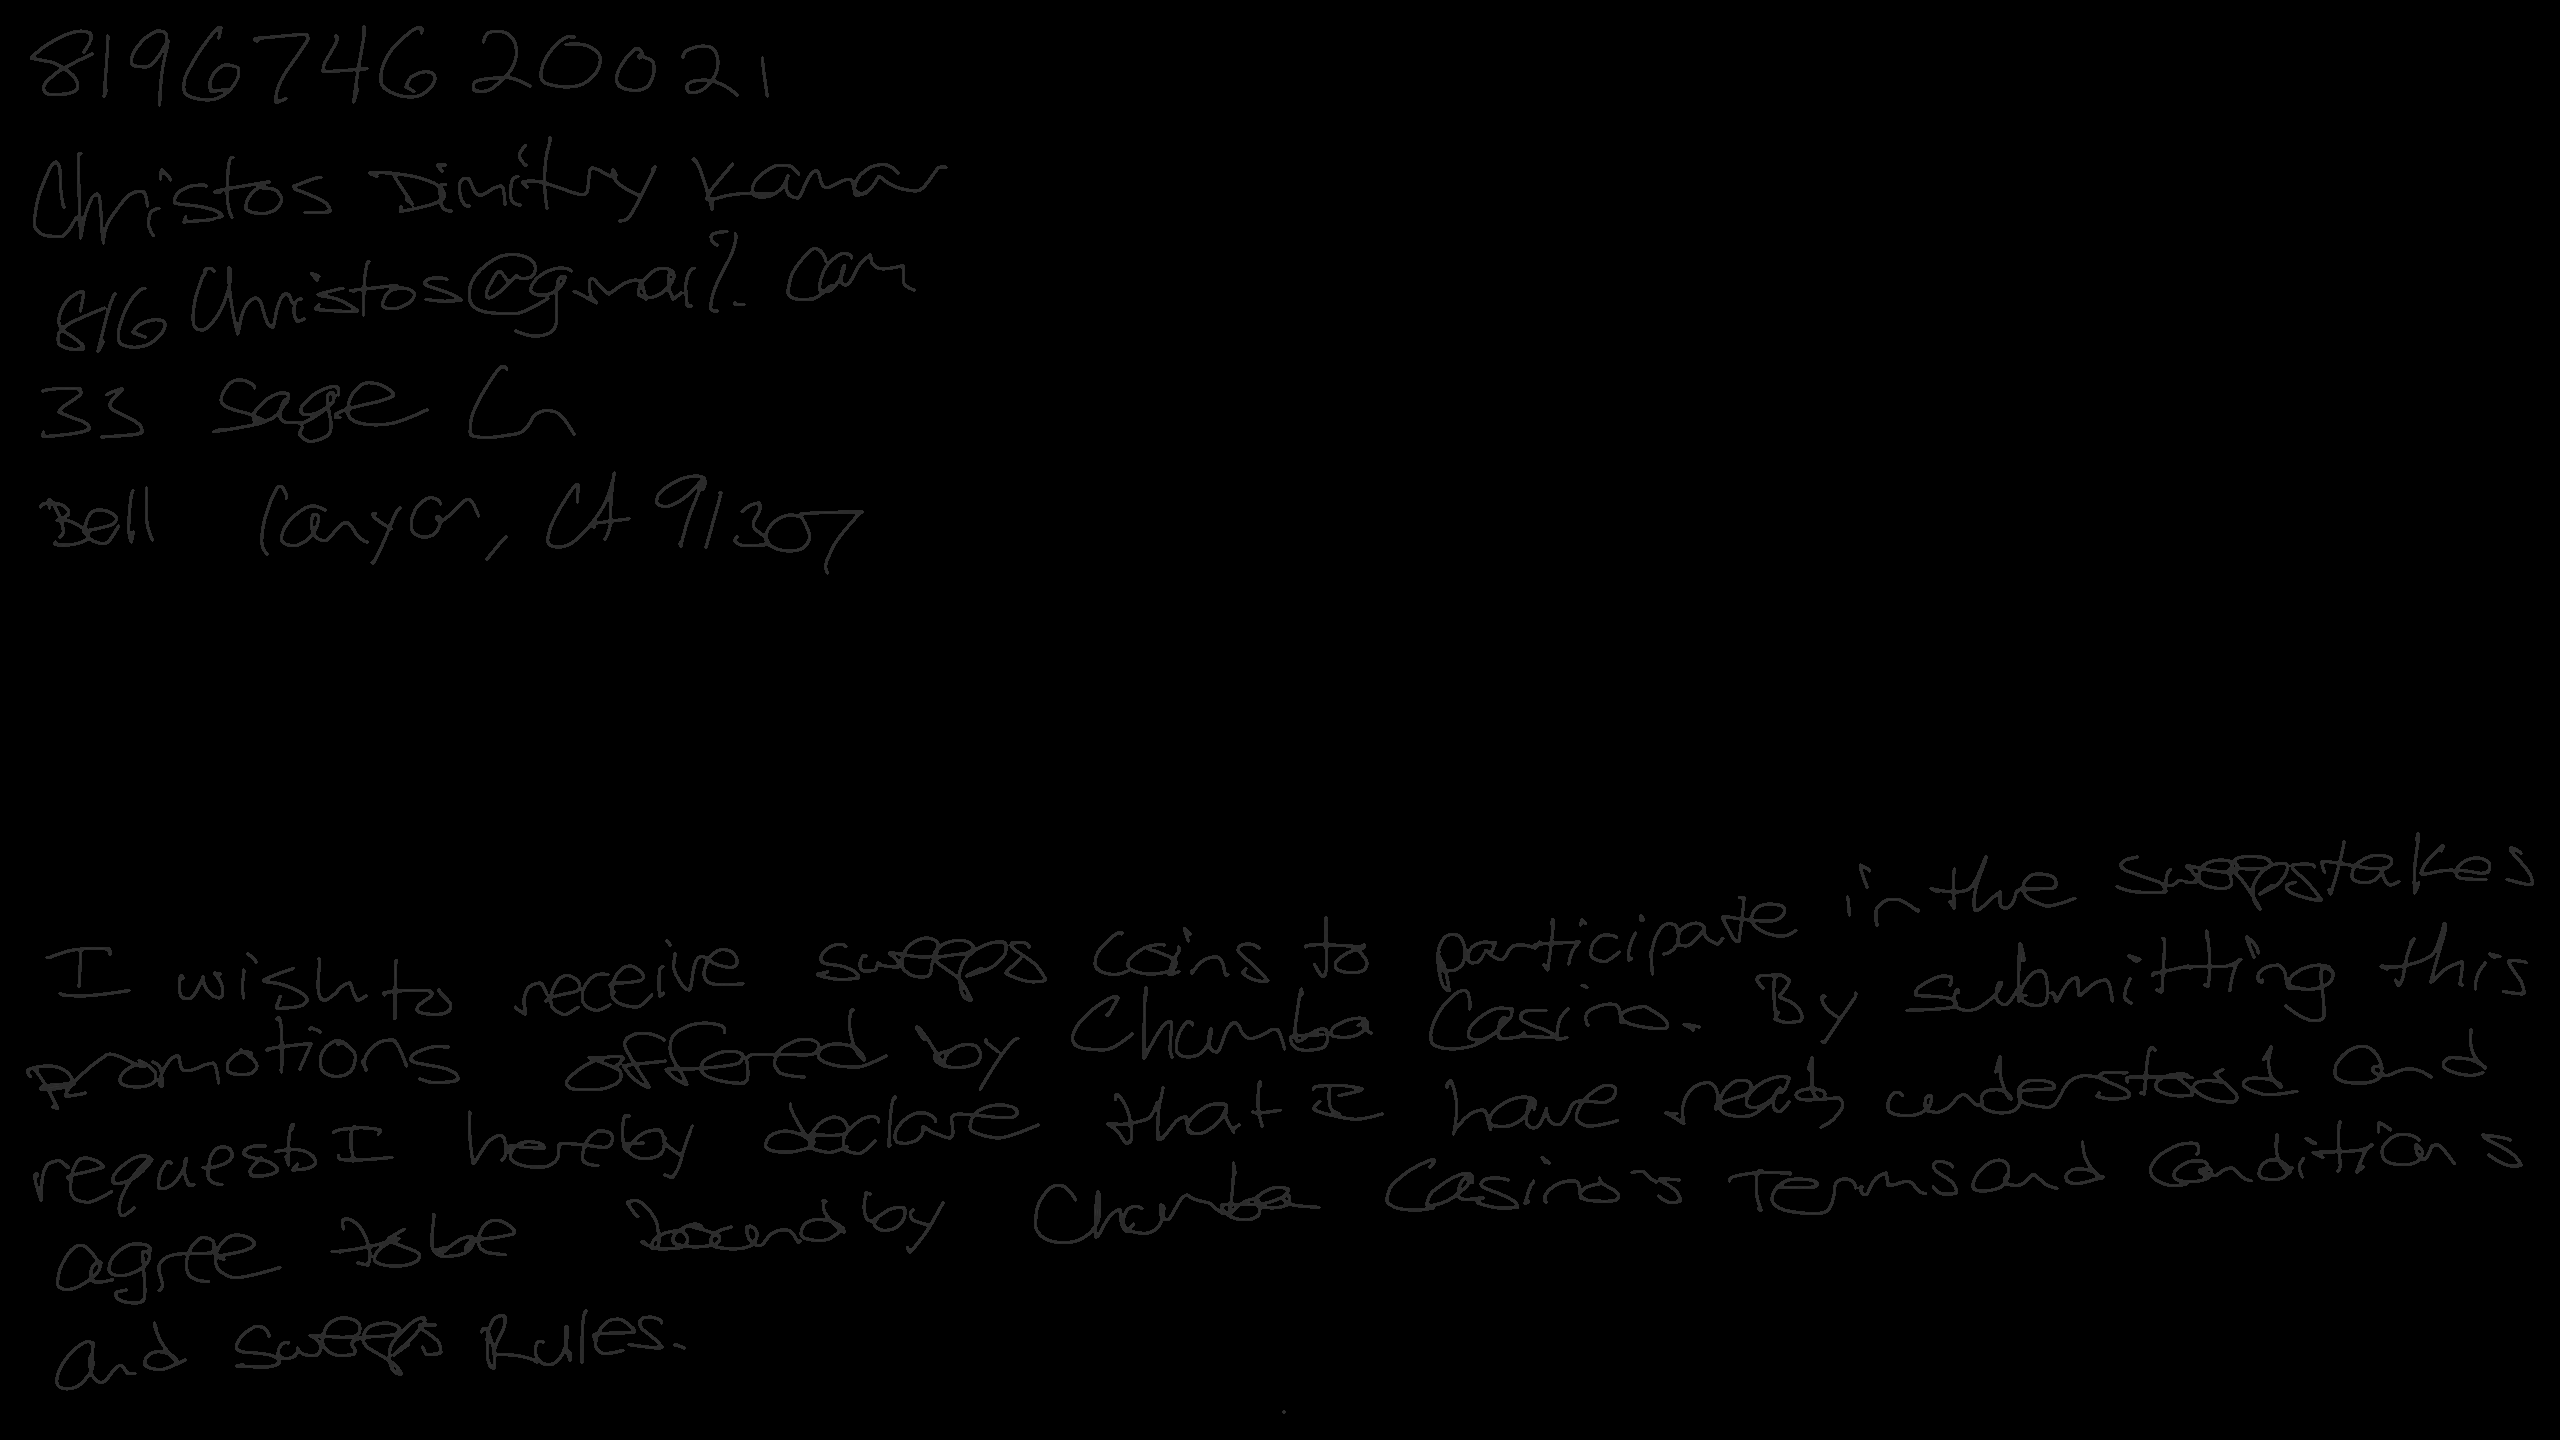 819674620021
Christos Dimitry
816Christos@gmail.com
33 Sage Ln
Bell Canyon, CA 91307
I wish to receive sweeps coins to participate in the sweepstakes
promotions offered by Chumba Casino. By submitting this
request, I hereby declare that I have read, understood and
agree to be bound by Chumba Casino's Terms and Conditions
and Sweeps Rules.